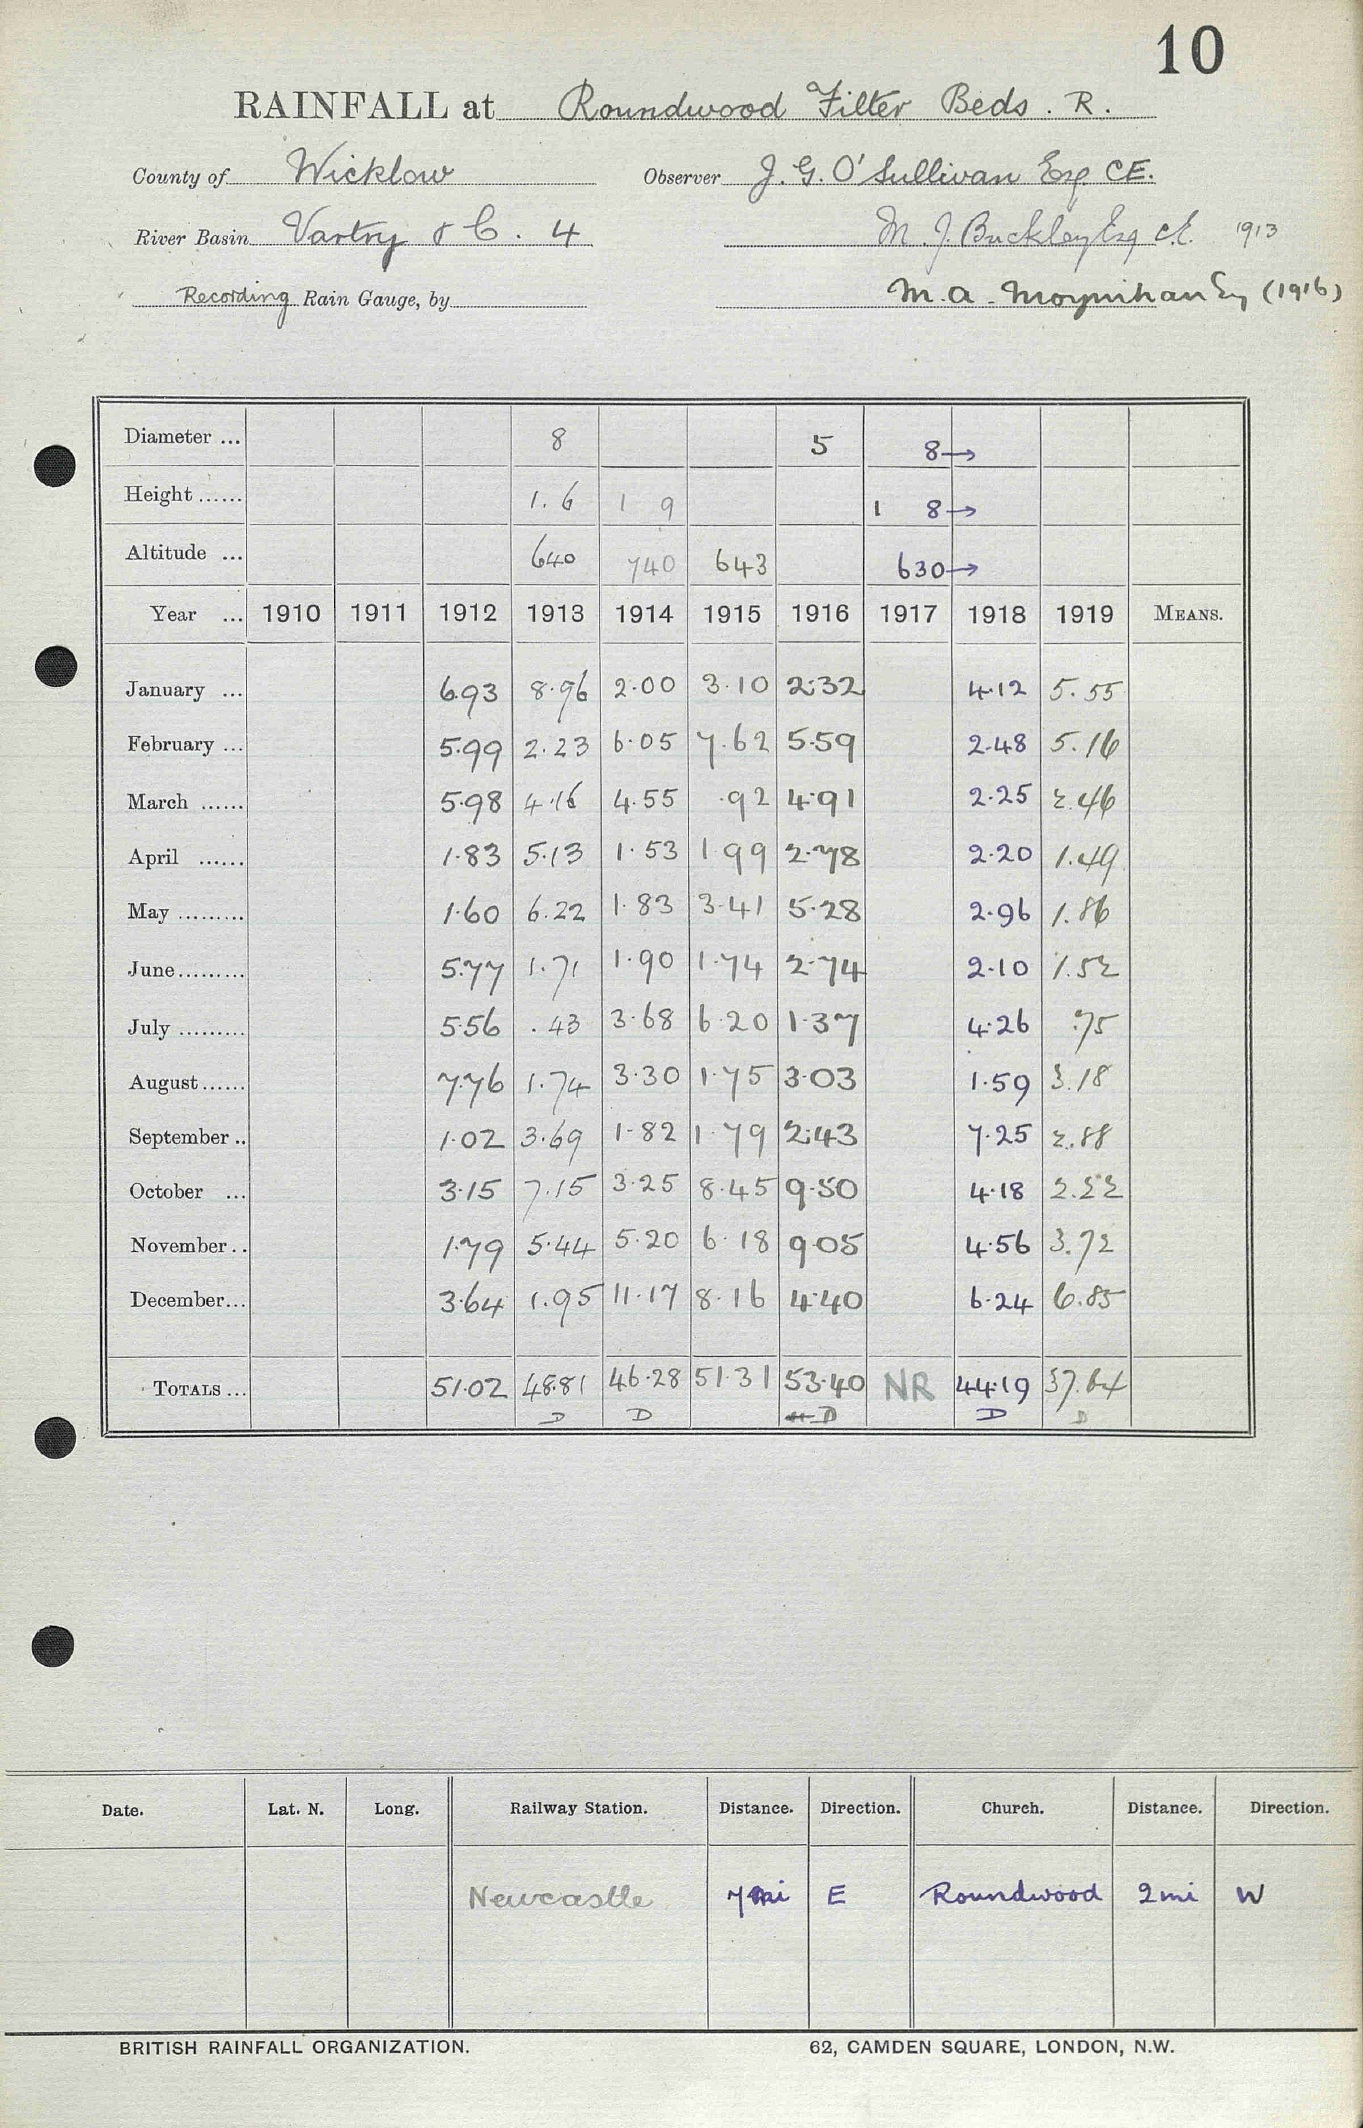 10
RAINFALL at Roundwood Filter Beds. R.
County of Wicklow Observer J. G. O'Sullivan Esq. CE.
River Basin Vartry & C. 4 M. J. Buckley Esq C.E. 1913
Recording Rain Gauge, by M. A. Moynihan Esq (1916)
Diameter ... 8 5 8→
Height ...... 1.6 1 9 1 8→
Altitude ... 640 740 643 630→
Year ... 1910 1911 1912 1913 1914 1915 1916 1917 1918 1919 MEANS.
January ... 6.93 8.96 2.00 3.10 2.32 4.12 5.55
February ... 5.99 2.23 6.05 7.62 5.59 2.48 5.16
March ...... 5.98 4.16 4.55 .92 4.91 2.25 2.46
April ...... 1.83 5.13 1.53 1.99 2.78 2.20 1.49
May ......... 1.60 6.22 1.83 3.41 5.28 2.96 1.86
June......... 5.77 1.71 1.90 1.74 2.74 2.10 1.52
July ......... 5.56 .43 3.68 6.20 1.37 4.26 .75
August...... 7.76 1.74 3.30 1.75 3.03 1.59 3.18
September .. 1.02 3.69 1.82 1.79 2.43 7.25 2.88
October ... 3.15 7.15 3.25 8.45 9.50 4.18 2.22
November .. 1.79 5.44 5.20 6.18 9.05 4.56 3.72
December... 3.64 1.95 11.17 8.16 4.40 6.24 6.85
TOTALS ... 51.02 48.81 46.28 51.31 53.40 NR 44.19 37.64
D D D D D
Date. Lat. N. Long. Railway Station. Distance. Direction. Church. Distance. Direction.
Newcastle 7 mi E Roundwood 2 mi W
BRITISH RAINFALL ORGANIZATION. 62, CAMDEN SQUARE, LONDON, N.W.